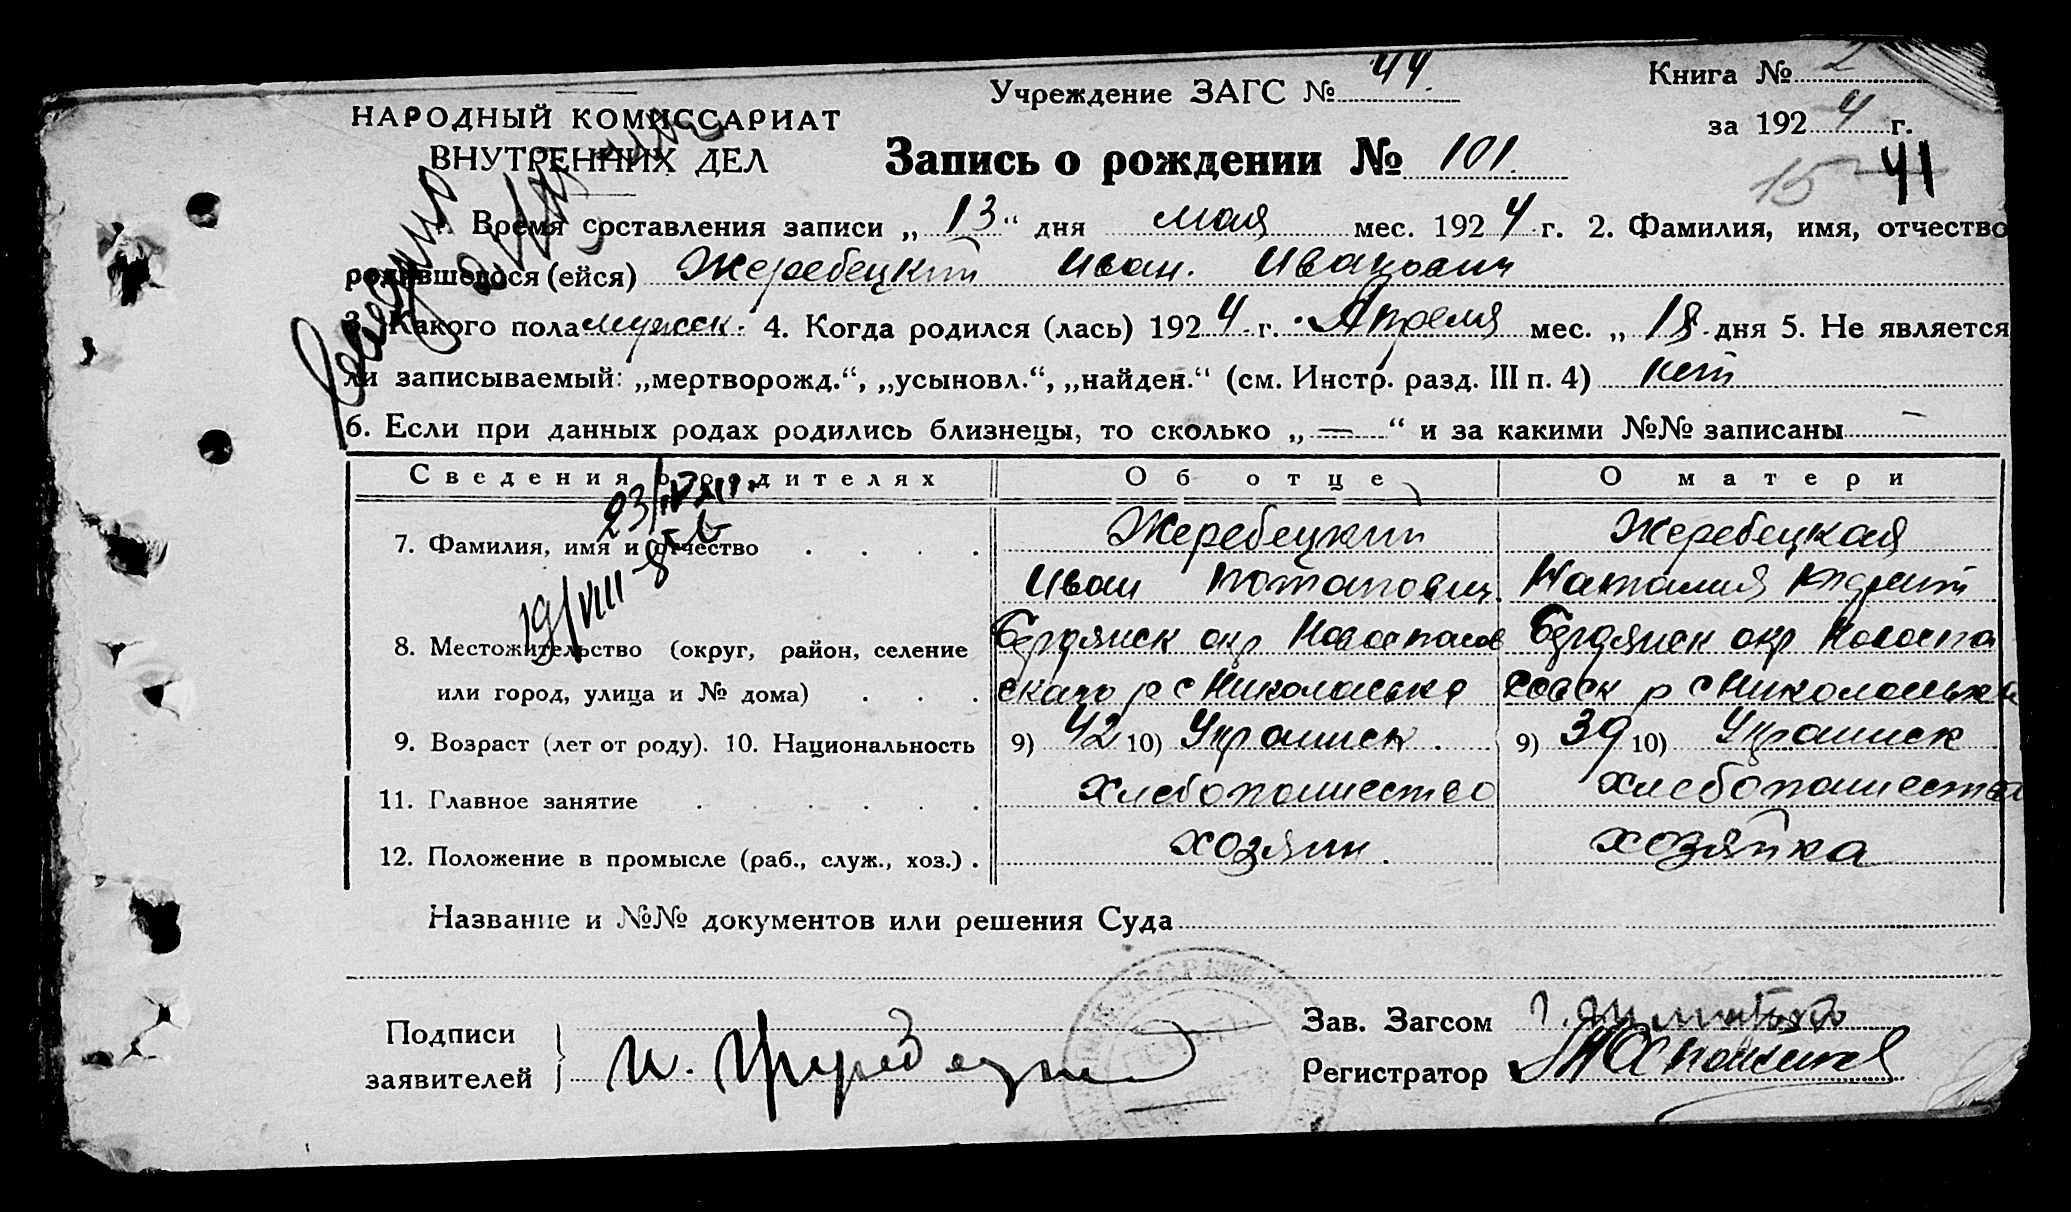 Учреждение ЗАГС № 44.
Книга № 2
за 1924 г.
НАРОДНЫЙ КОМИССАРИАТ
ВНУТРЕННИХ ДЕЛ
Запись о рождении № 101.
15 41
1. Время составления записи „13“ дня мая мес. 1924 г. 2. Фамилия, имя, отчество
родившегося (ейся) Жеребецкий Иван. Иванович
3. Какого пола мужск. 4. Когда родился (лась) 1924 г. Апреля мес. „18 дня 5. Не является
ли записываемый: „мертворожд.“, „усыновл.“, „найден.“ (см. Инстр. разд. III п. 4) нет
6. Если при данных родах родились близнецы, то сколько „—“ и за какими №№ записаны —
Сведения о родителях Об отце О матери
23/
19/VIII
7. Фамилия, имя и отчество Жеребецкий Жеребецкая
Иван Потапович. Наталия
8. Местожительство (округ, район, селение Бердянск окр Новоспасов Бердянск окр Новоспа
или город, улица и № дома) скаго р с Николаевка совск р с Николаевка
9. Возраст (лет от роду). 10. Национальность 9) 42 10) Украинск. 9) 39 10) Украинск
11. Главное занятие Хлебопашество хлебопашество
12. Положение в промысле (раб., служ., хоз.). хозяин. хозяйка
Название и №№ документов или решения Суда
Подписи
заявителей
И. Жеребецкий
Зав. Загсом
Регистратор